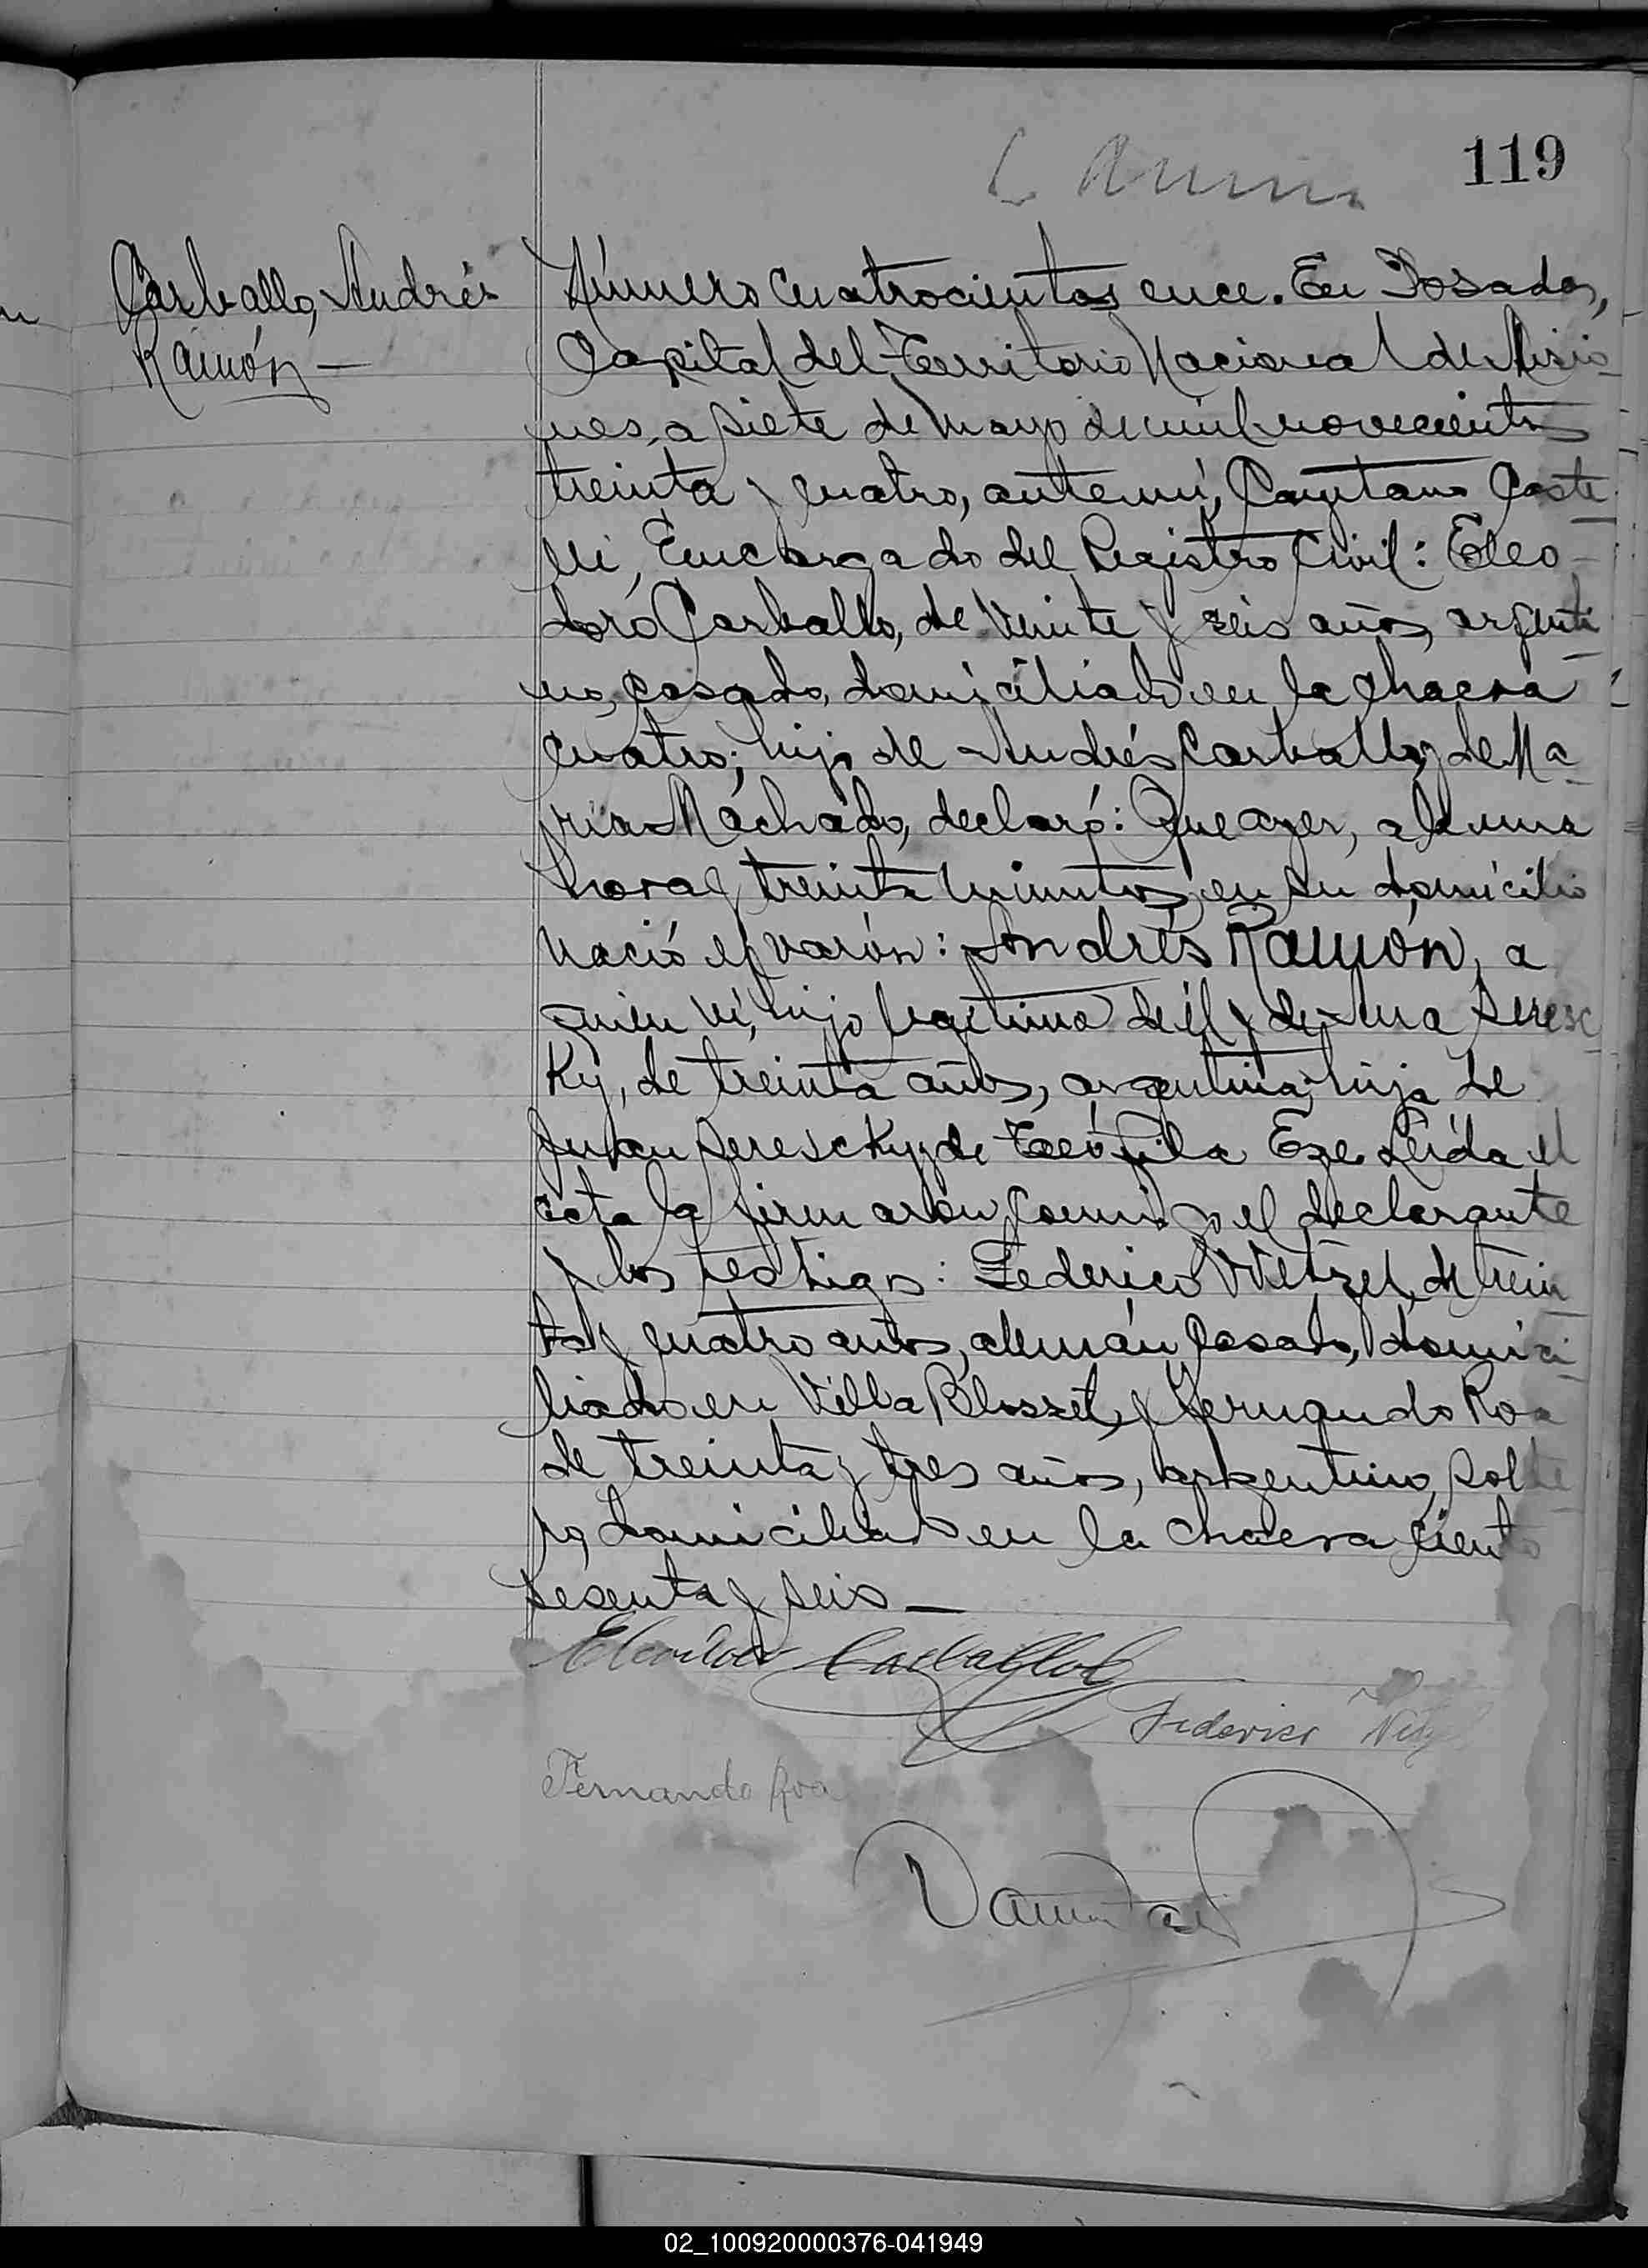 119
Carballo, Andrés
Ramón —
Número cuatrocientos once. En Posadas,
Capital del Territorio Nacional de Misio-
nes, a siete de mayo de mil novecientos
treinta y cuatro, ante mí, Cayetano Caste-
lli, Encargado del Registro Civil: Eleo-
doro Carballo, de veinte y seis años, argenti-
no, casado, domiciliado en la chacra
cuatro; hijo de Andrés Carballo y de Ma-
ría Machado, declaró: Que ayer, a la una
hora y treinta minutos, en su domicilio
nació el varón: Andrés Ramón, a
quien ví, hijo legítimo de él y de Ana Seresc-
ky, de treinta años, argentina; hija de
Juan Serescky y de Teófila Eze. Leída el
acta la firmaron conmigo el declarante
y los testigos: Federico Wetzel, de trein-
ta y cuatro años, alemán, casado, domici-
liado en Villa Blosset, y Fernando Roa
de treinta y tres años, argentino, solte-
ro, domiciliado en la chacra ciento
sesenta y seis —
Eleodoro Carballo
Federico
Fernando Roa
02_100920000376-041949